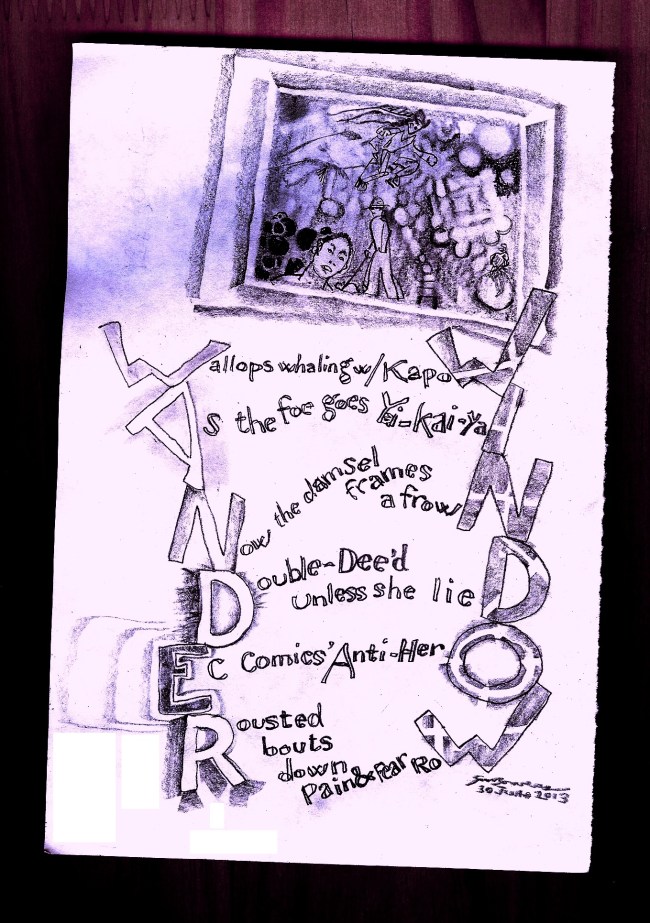 Wallops whaling w/KapoW
As the foe goes Yi-Kai-YaI
Now the damsel
frames
a frowN
Double-Dee'd
unless she lieD
EC Comics' Anti-HerO
Rousted
bouts
down
Pain&Fear RoW
30 June 2013